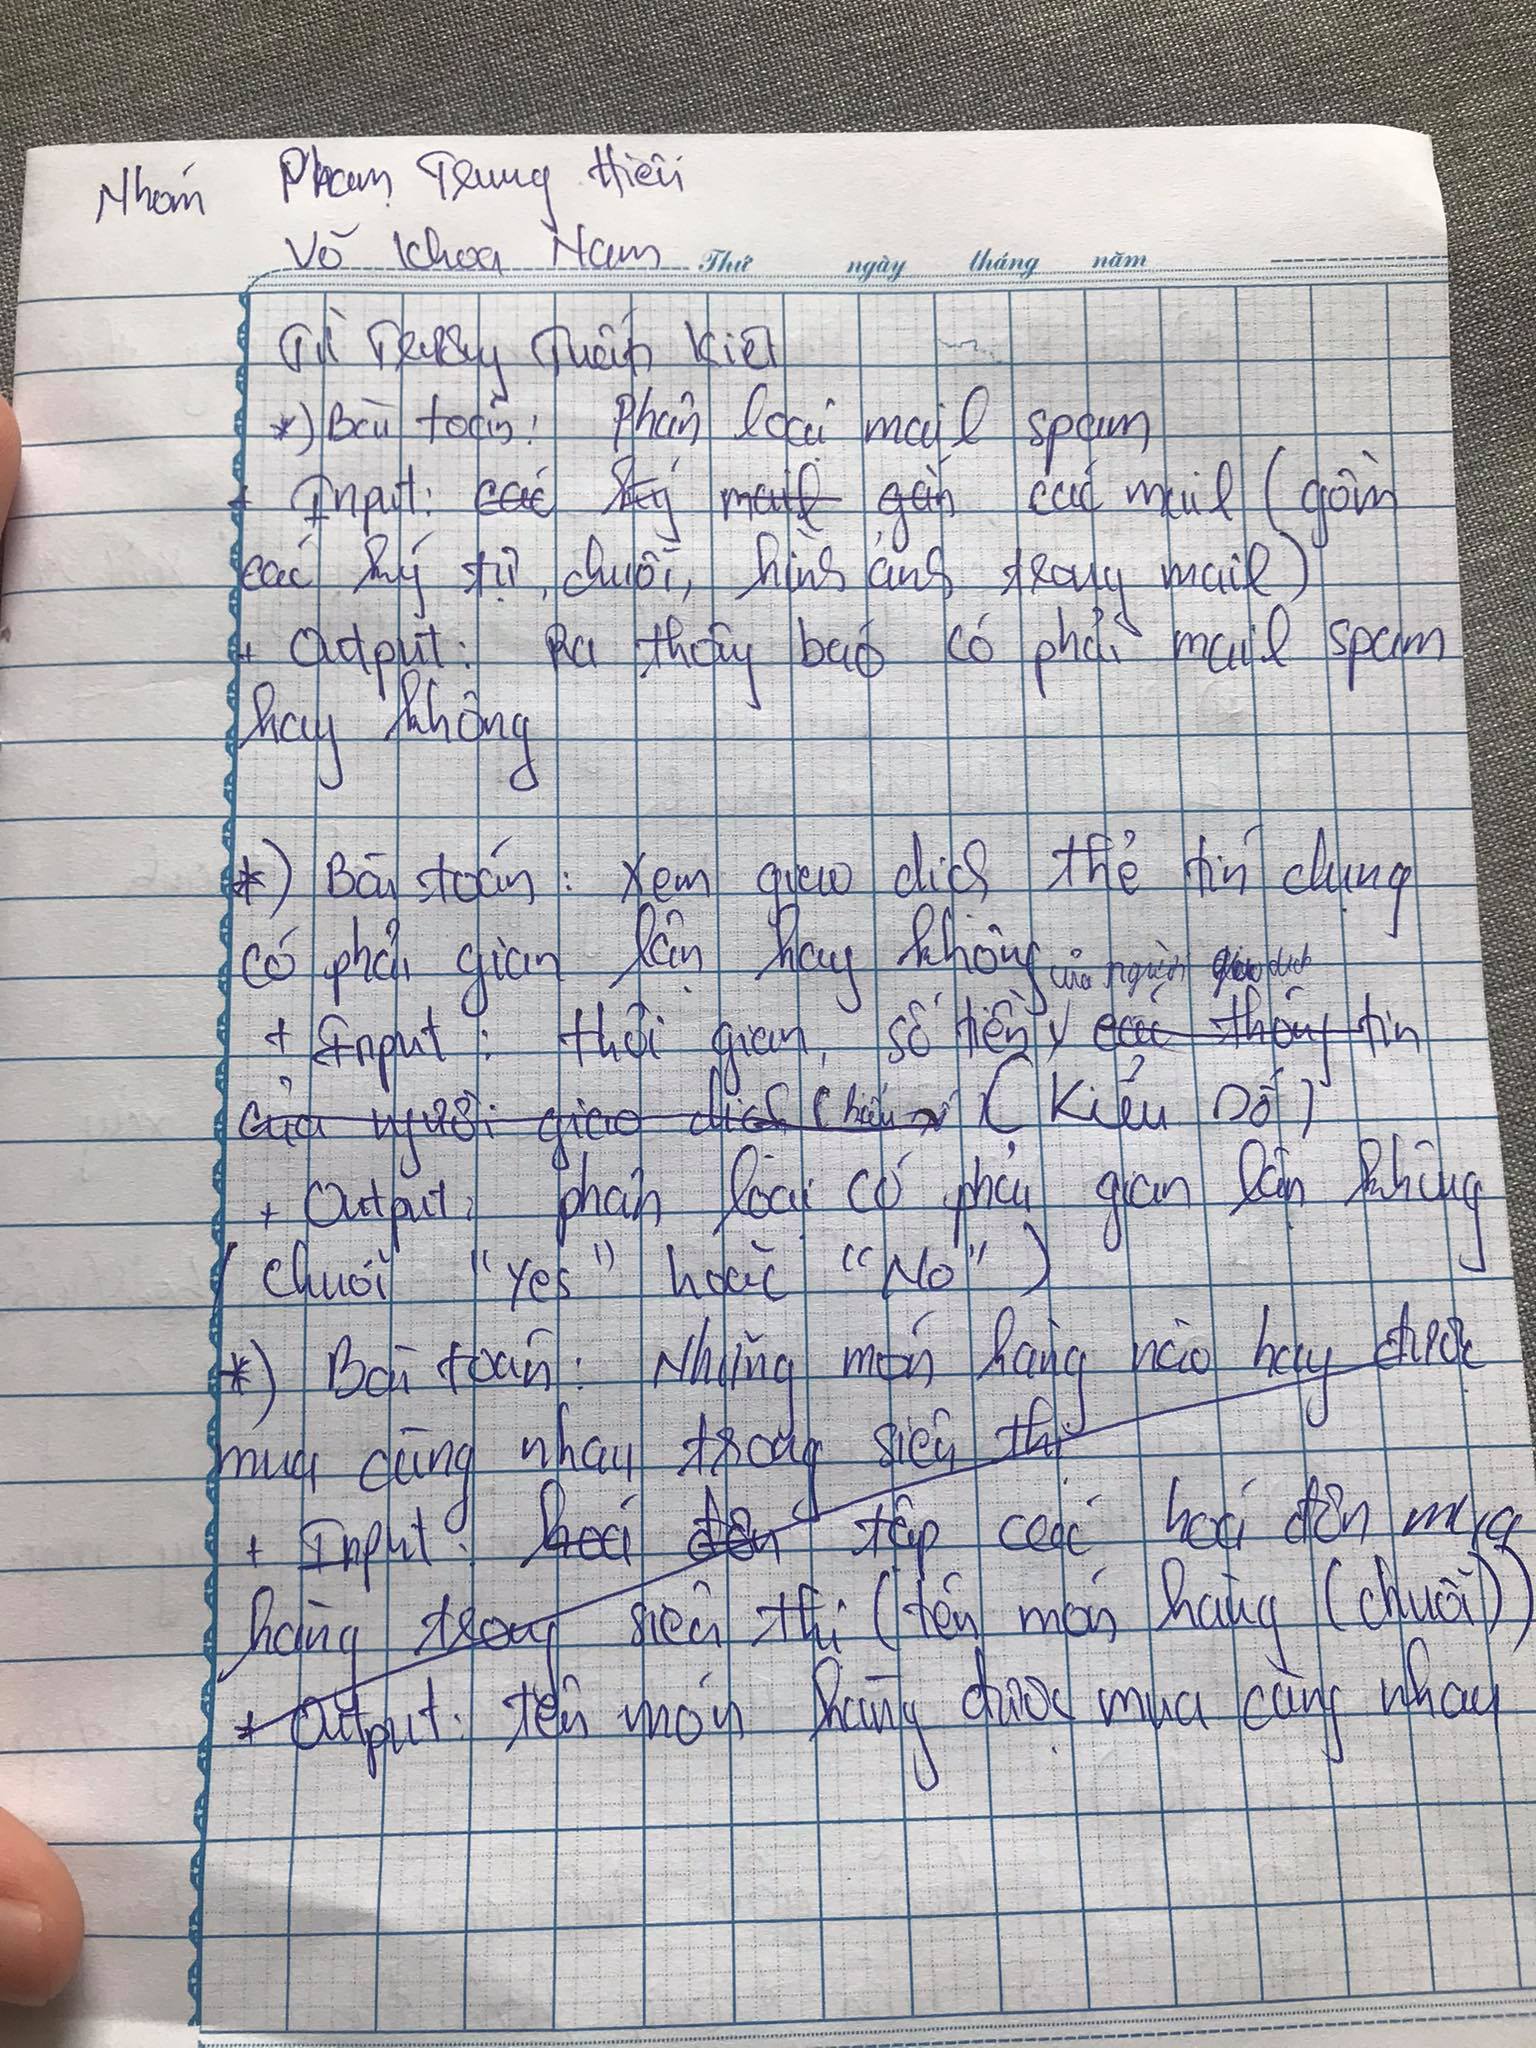 Nhóm Phạm Trung Hiếu
Võ Khoa Nam Thứ ngày tháng năm
Tuấn Kiệt
*) Bài toán: Phân loại mail spam
+ Input: các ký mail gần các mail (gồm
các ký tự, chuỗi, hình ảnh trong mail)
+ Output: Ra thông báo có phải mail spam
hay không
*) Bài toán: Xem giao dịch thẻ tín dụng
có phải gian lận hay không
của người giao dịch
+ Input: thời gian, số tiền, các thông tin
của người giao dịch (kiểu số)
+ Output: phân loại có phải gian lận không
(chuỗi "Yes" hoặc "No")
*) Bài toán: Những món hàng nào hay được
mua cùng nhau trong siêu thị
+ Input: hoá đơn tập các hoá đơn mua
hàng trong siêu thị (tên món hàng (chuỗi))
+ Output: tên món hàng được mua cùng nhau